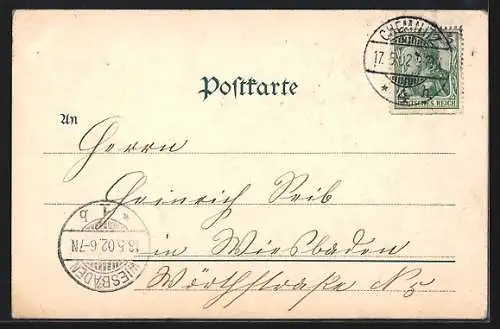 CHEMNITZ
17.5.02
DEUTSCHES REICH
Postkarte
An
Herrn
Heinrich Seib
in Wiesbaden
Wörthstraße
WIESBADEN
18.5.02.6-7N
1
b